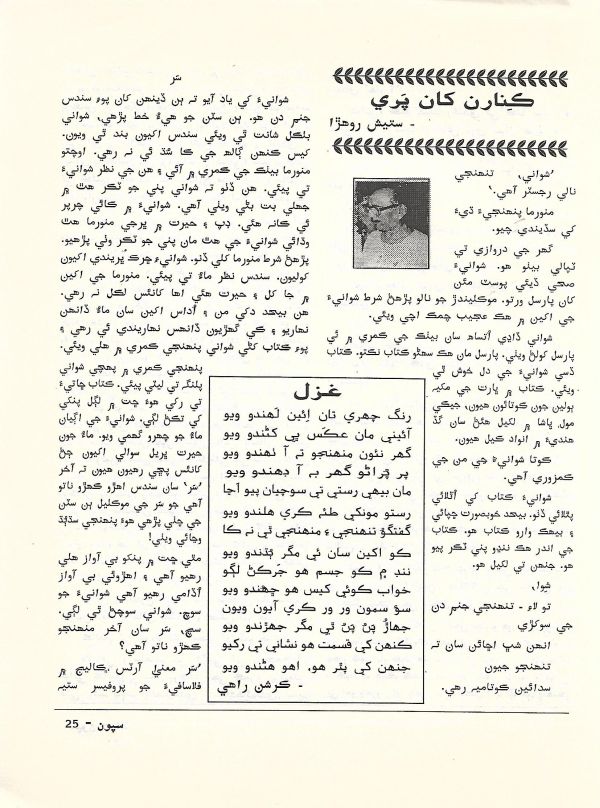 ڪِنارن کان پَري
- ستيش روهڙا
’شواني، تنهنجي
نالي رجسٽر آهي.‘
منورما پنهنجيءَ ڌيءَ
کي سڏيندي چيو.
گهر جي دروازي تي
ٽپالي بيٺو هو. شوانيءَ
صحي ڏيئي پوسٽ مئن
کان پارسل ورتو. موڪليندڙ جو نالو پڙهڻ شرط شوانيءَ
جي اکين ۾ هڪ عجيب چمڪ اچي ويئي.
شواني ڏاڍي اُتساهه سان بيٺڪ جي ڪمري ۾ ئي
پارسل کولڻ ويٺي. پارسل مان هڪ سهڻو ڪتاب نڪتو. ڪتاب
ڏسي شوانيءَ جي دل خوش ٿي
ويئي. ڪتاب ۾ ڀارت جي مکيه
ٻولين جون ڪوتائون هيون، جيڪي
مول ڀاشا ۾ لکيل هئڻ سان گڏ
هنديءَ ۾ انواد ڪيل هيون.
ڪوتا شوانيءَ جي من جي
ڪمزوري آهي.
شوانيءَ ڪتاب کي اُٿلائي
پٿلائي ڏٺو. بيحد خوبصورت ڇپائي
۽ بيهڪ وارو ڪتاب هو. ڪتاب
جي اندر هڪ ننڍو پني ٽڪر پيو
هو. جنهن تي لکيل هو.
شِوا،
تو لاءِ - تنهنجي جنم دن
جي سوکڙي
انهن شڀ اڇائن سان ته
تنهنجو جيون
سدائين ڪوتاميه رهي.
سَر
شوانيءَ کي ياد آيو ته ٻن ڏينهن کان پوءِ سندس
جنم دن هو. ٻن سٽن جو هيءُ خط پڙهي، شواني
بلڪل شانت ٿي ويئي سندس اکيون بند ٿي ويون.
کيس ڪنهن ڳالهه جي ڪا سُڌ ئي نه رهي. اوچتو
منورما بيٺڪ جي ڪمري ۾ آئي ۽ هن جي نظر شوانيءَ
تي پيئي. هن ڏٺو ته شواني پني جو ٽڪر هٿ ۾
جهلي بت بڻي ويٺي آهي. شوانيءَ ۾ ڪائي چرپر
ئي ڪانه هئي. ڊپ ۽ حيرت ۾ ڀرجي منورما هٿ
وڌائي شوانيءَ جي هٿ مان پني جو ٽڪر وٺي پڙهيو.
پڙهڻ شرط منورما کلي ڏنو. شوانيءَ ڇرڪ ڀريندي اکيون
کوليون. سندس نظر ماءُ تي پيئي. منورما جي اکين
۾ جا کل ۽ حيرت هئي اها کانئس لڪل نه رهي.
هن بيحد دکي من ۽ اُداس اکين سان ماءُ ڏانهن
نهاريو ۽ ڪي گهڙيون ڏانهس نهاريندي ئي رهي ۽
پوءِ ڪتاب کڻي شواني پنهنجي ڪمري ۾ هلي ويئي.
پنهنجي ڪمري ۾ پهچي شواني
پلنگ تي ليٽي پيئي. ڪتاب ڇاتيءَ
تي رکي هوءَ ڇت ۾ لڳل پنکي
کي تڪڻ لڳي. شوانيءَ جي اڳيان
ماءُ جو چهرو گهمي ويو. ماءُ جون
حيرت ڀريل سوالي اکيون ڄڻ
کانئس پڇي رهيون هيون ته آخر
’سَر‘ سان سندس اهڙو ڪهڙو ناتو
آهي جو سَر جي موڪليل ٻن سٽن
جي چٺي پڙهي هوءَ پنهنجي سڌٻڌ
وڃائي ويٺي!
مٿي ڇت ۾ پنکو بي آواز هلي
رهيو آهي ۽ اهڙوئي بي آواز
اُڏامي رهيو آهي شوانيءَ جو
سوچ. شواني سوچڻ ٿي لڳي.
سچ، سَر سان آخر منهنجو
ڪهڙو ناتو آهي؟
’سَر‘ معنيٰ آرٽس ڪاليج ۾
فلاسافيءَ جو پروفيسر ستيه
غزل
رنگ چهري تان اِئين لَهندو ويو
آئيني مان عڪس پي کڻندو ويو
گهر نئون منهنجو ته اَ ٺهندو ويو
پر پُراڻو گهر به اَ ڊهندو ويو
مان بيهي رستي تي سوچيان پيو اڃا
رستو مونکي طئہ ڪري هلندو ويو
گفتگوُ تنهنجي ۽ منهنجي ٿي نه ڪا
ڪو اکين سان ئي مگر ٻُڌندو ويو
ننڊ ۾ ڪو جسم هو جَرڪڻ لڳو
خواب ڪوئي کيس هو ڇهندو ويو
سؤ سمون ور ور ڪري آيون ويون
جهاڙُ پَنُ پَنُ ٿي مگر جهڙندو ويو
ڪنهن کي قسمت هو نشاني تي رکيو
جنهن کي پٿر هو، اهو هڻندو ويو
- ڪرشن راهي
سپون - 25